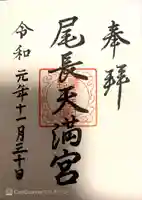 奉拝
尾長天満宮
令和元年十一月三十日